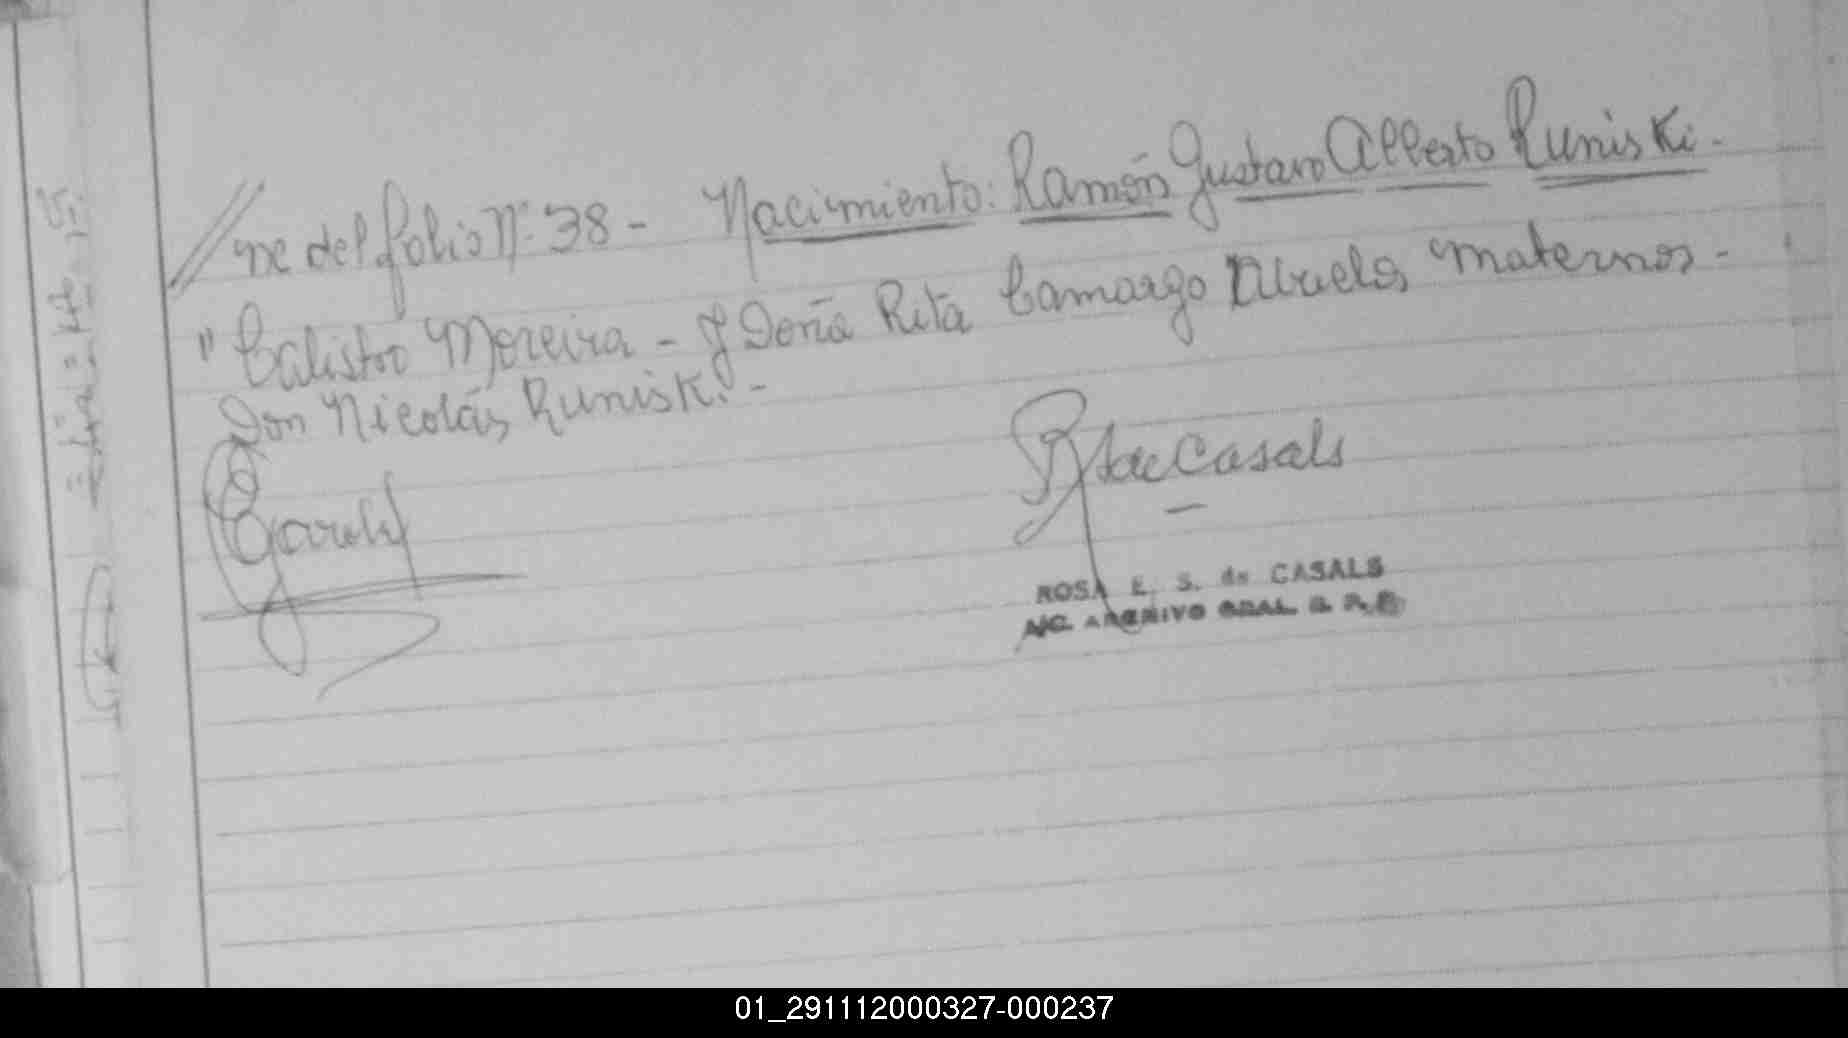 //ne del folio Nº 38 - Nacimiento: Ramón Gustavo Alberto Runiski.
" Calistro Moreira - y Doña Rita Camargo Abuelos maternos -
Don Nicolás Runiski. -
R S de Casals
ROSA E. S. de CASALS
A/C. ARCHIVO GRAL. R. P.
01_291112000327-000237